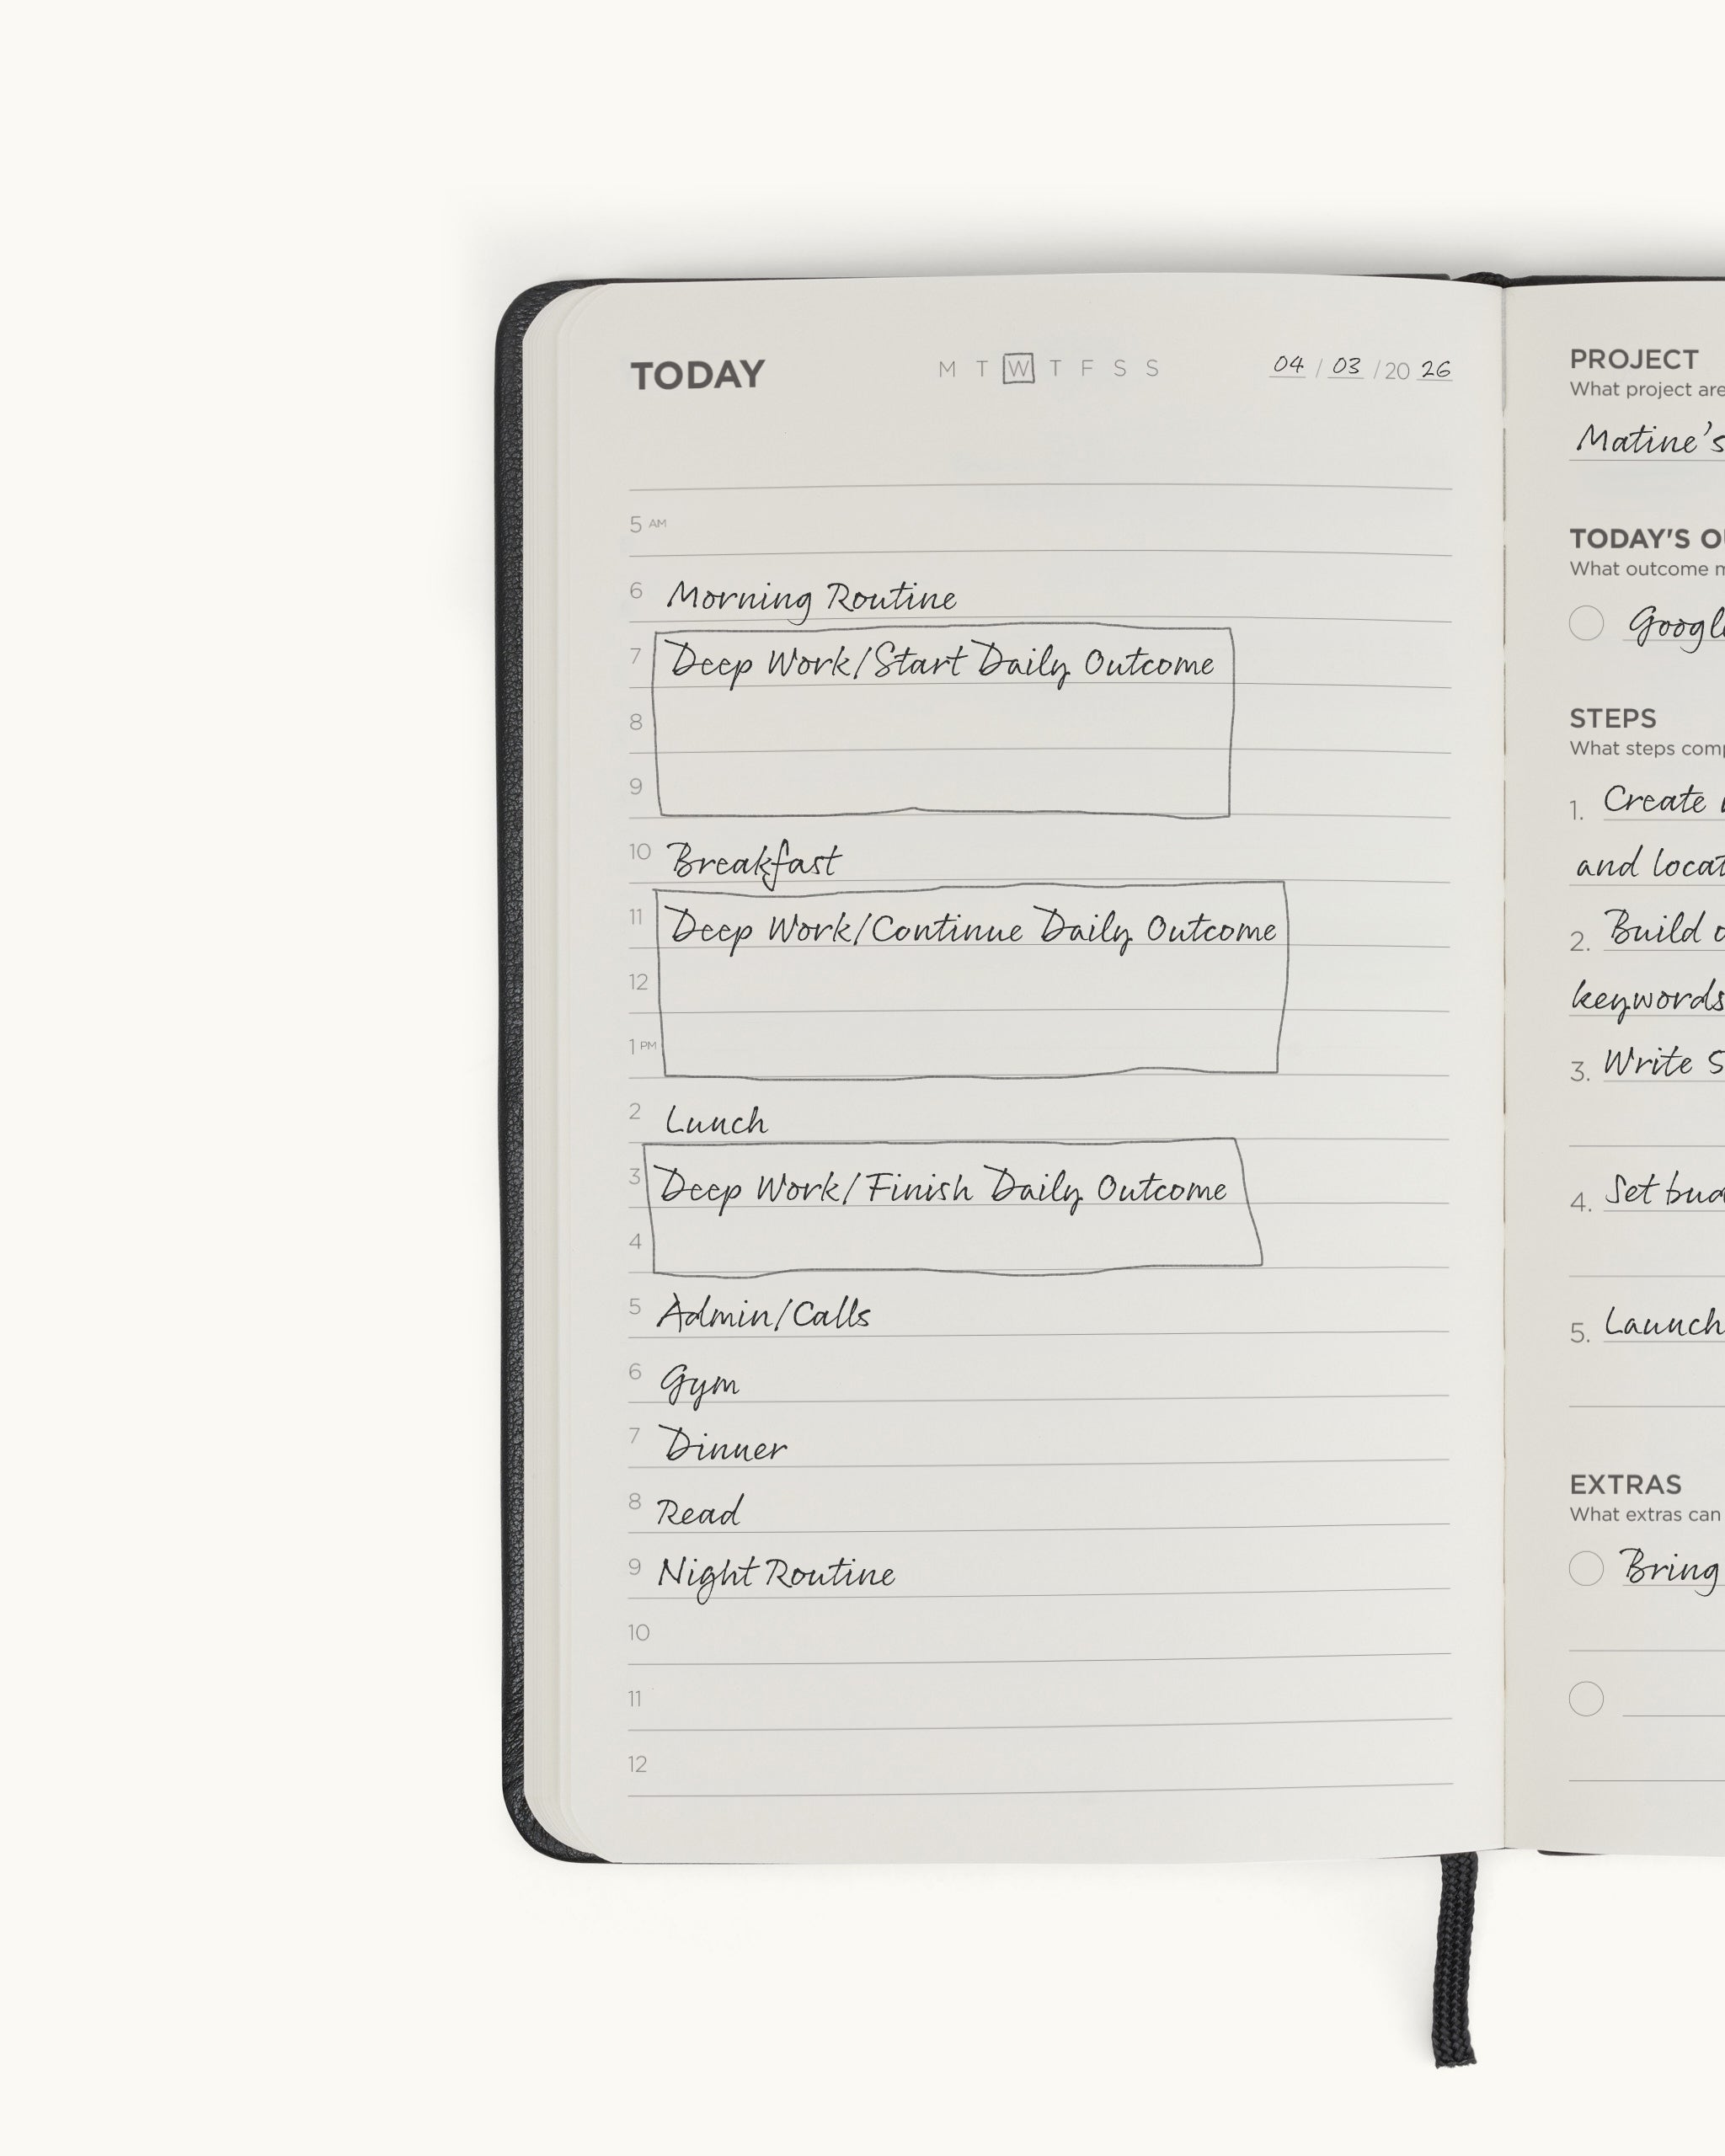 TODAY M T W T F S S 04 / 03 / 20 26
5 AM
6 Morning Routine
7 Deep Work/Start Daily Outcome
8
9
10 Breakfast
11 Deep Work/Continue Daily Outcome
12
1 PM
2 Lunch
3 Deep Work/Finish Daily Outcome
4
5 Admin/Calls
6 Gym
7 Dinner
8 Read
9 Night Routine
10
11
12
PROJECT
What project are
Matine's
TODAY'S
What outcome
STEPS
What steps
1. Create
and
2. Build
keywords
3. Write
4. Set
5. Launch
EXTRAS
What extras can
Bring